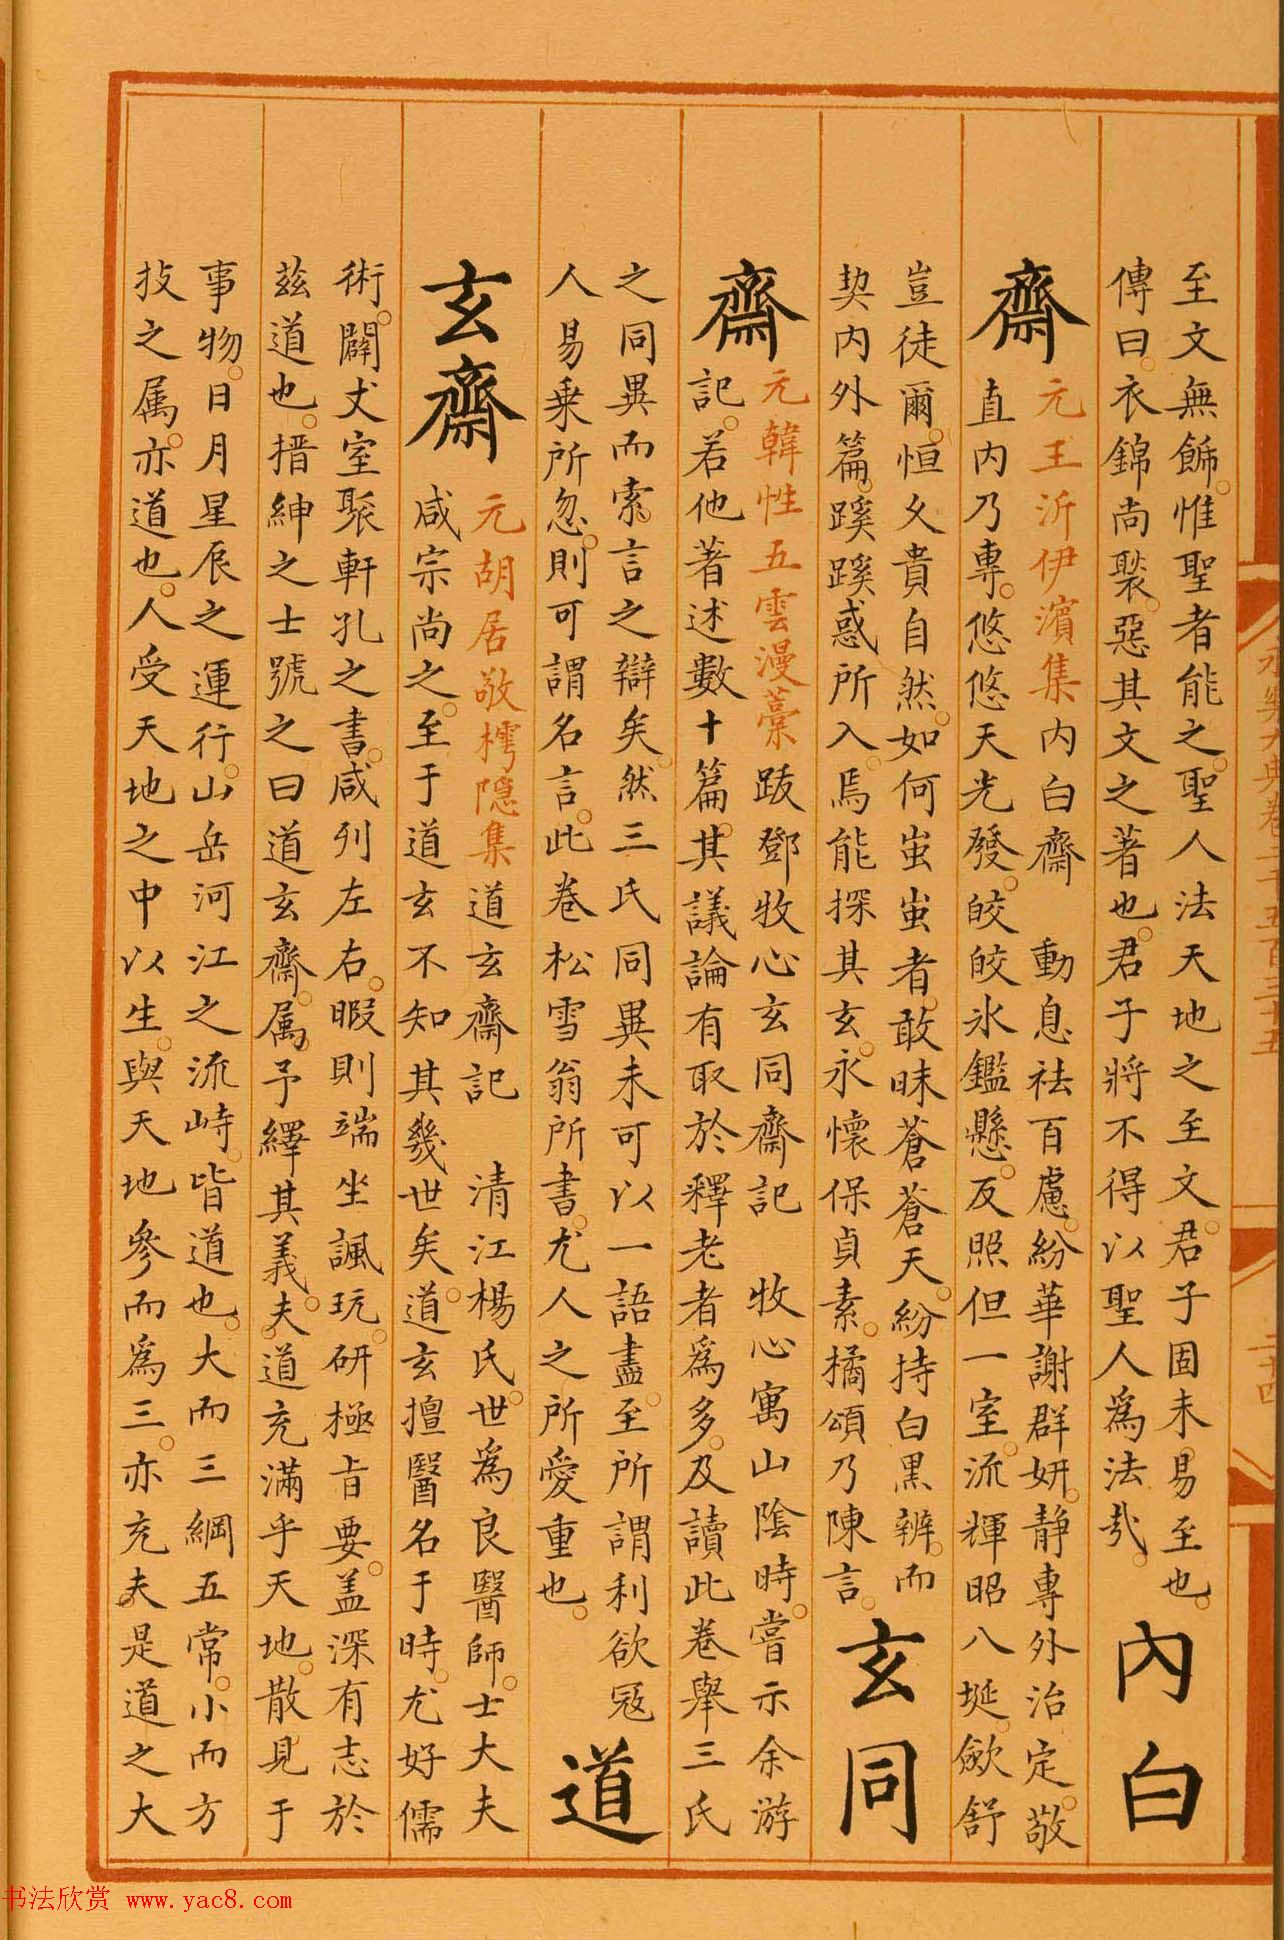 至文無飾惟聖者能之聖人法天地之至文君子固未易至也
傳曰衣錦尚褧惡其文之著也君子將不得以聖人爲法哉
內白
齋
元王沂伊濱集內白齋 動息祛百慮紛華謝群妍静專外治定敬
直内乃專悠悠天光發皎皎氷鑑懸反照但一室流輝昭八埏歛舒
豈徒爾恒久貴自然如何蚩蚩者敢昧蒼蒼天紛持白黒辨而
契内外篇蹊蹊惑所入焉能探其玄永懷保貞素橘頌乃陳言
玄同
齋
元韓性五雲漫藁跋鄧牧心玄同齋記 牧心寓山陰時嘗示余游
記若他著述數十篇其議論有取於釋老者爲多及讀此卷舉三氏
之同異而索言之辯矣然三氏同異未可以一語盡至所謂利欲冦
人易乗所忽則可謂名言此卷松雪翁所書尤人之所愛重也
道
玄齋
元胡居敬樗隠集道玄齋記 清江楊氏世爲良醫師士大夫
咸宗尚之至于道玄不知其幾世矣道玄擅醫名于時尤好儒
術闢丈室聚軒孔之書咸列左右暇則端坐諷玩研極旨要盖深有志於
兹道也搢紳之士號之曰道玄齋属予繹其義夫道充滿乎天地散見于
事物日月星辰之運行山岳河江之流峙皆道也大而三綱五常小而方
技之属亦道也人受天地之中以生與天地參而爲三亦充夫是道之大
永樂大典卷二千五百三十五
二十四
书法欣赏 www.yac8.com